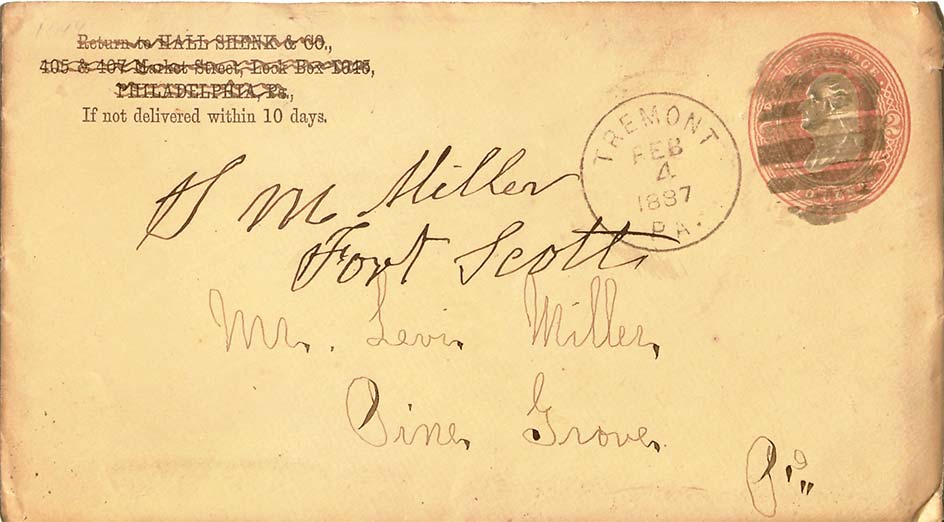 Return to HALL SHENK & CO.,
405 & 407 Market Street, Lock Box 1645,
PHILADELPHIA, Pa.,
If not delivered within 10 days.
TREMONT
FEB
4
1887
PA.
U.S. POSTAGE
S M Miller
Fort Scott
Mr. Levi Miller,
Pine Grove
Pa